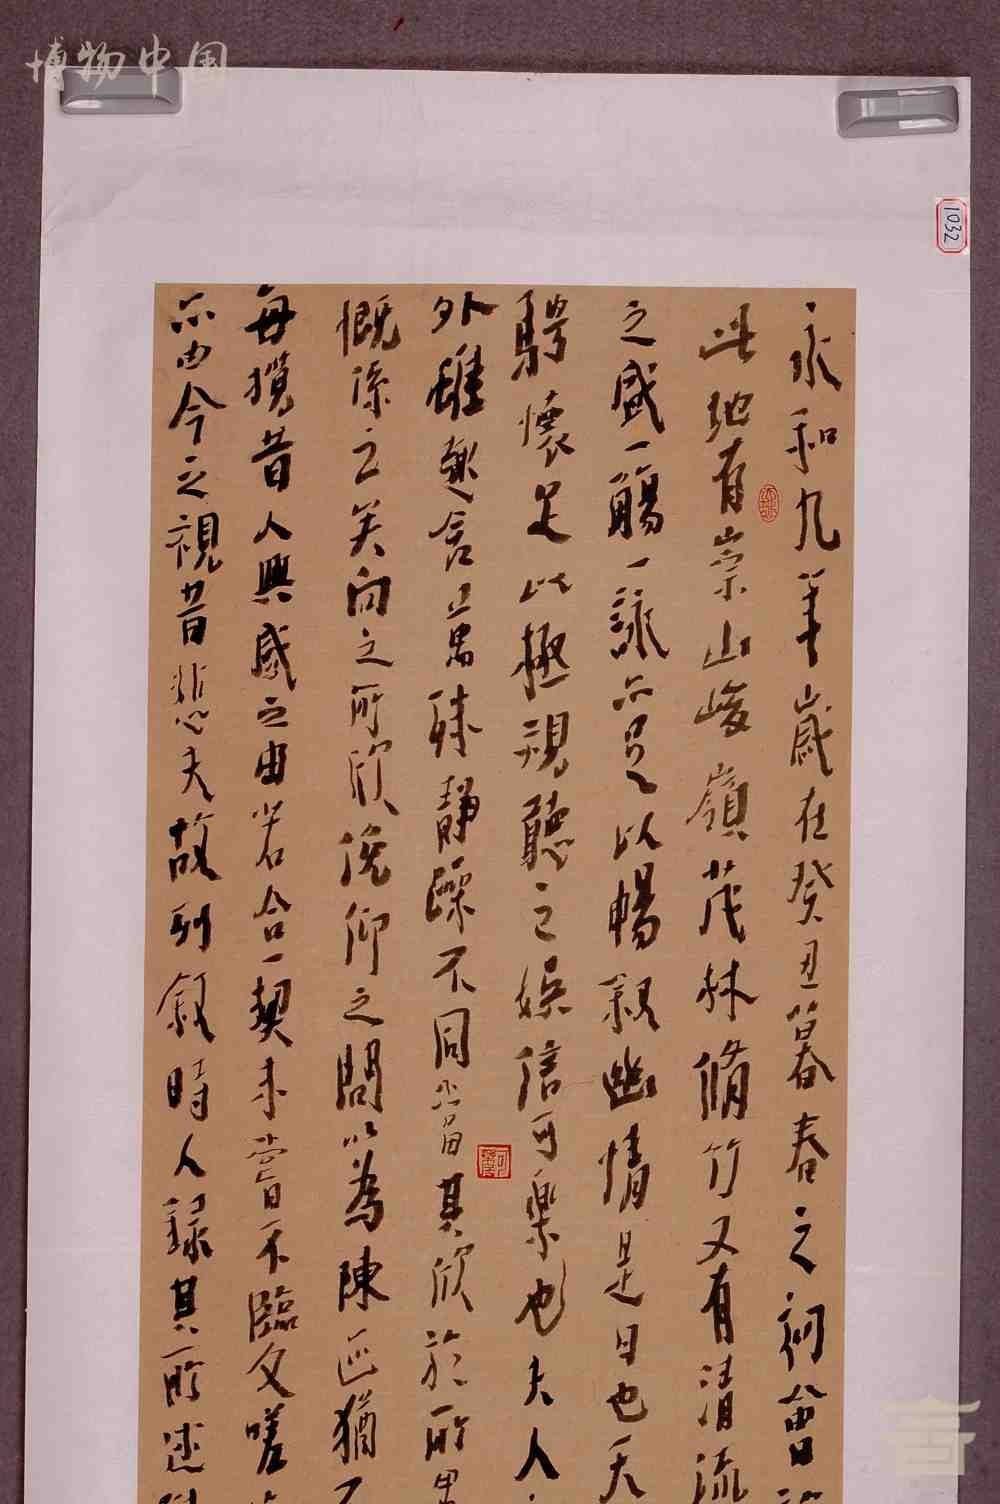 博物中国
1032
永和九年歲在癸丑暮春之初會
此地有崇山峻嶺茂林脩竹又有清流
之盛一觴一詠亦足以暢叙幽情是日也天
騁懷足以極視聽之娛信可樂也夫人
外雖趣舍萬殊静躁不同當其欣於所
慨係之矣向之所欣俛仰之間以為陳迹猶不
每攬昔人興感之由若合一契未嘗不臨文嗟
亦由今之視昔悲夫故列叙時人録其所述